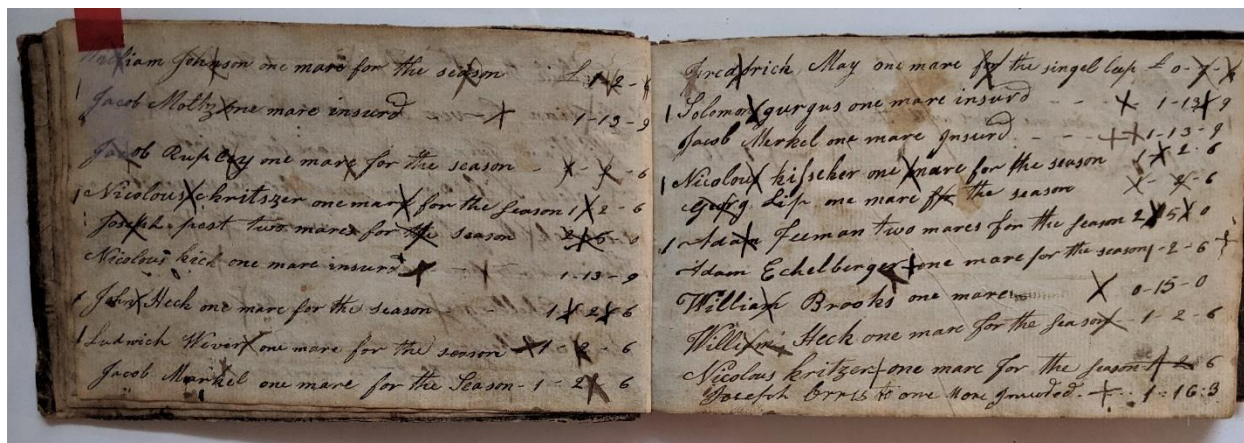 William Johnson one mare for the season £ 1-2-6
Jacob Moltz one mare insurd 1-13-9
Jacob Rupley one mare for the season - 1-2-6
1 Nicolous kritszer one mare for the season 1-2-6
Joseph post two mares for the season 2-5-0
Nicolous kick one mare insurd - 1-13-9
1 John Heck one mare for the season - 1-2-6
1 Ludwich Wever one mare for the season - 1-2-6
Jacob Markel one mare for the Season - 1-2-6
Fredrick May one mare for the singel leep £ 0-7-6
1 Solomon gurgus one mare insurd - - 1-13-9
Jacob Merkel one mare Insurd - - 1-13-9
1 Nicolous kifscher one mare for the season 1-2-6
Georg Lip one mare for the season 1-2-6
1 Adam Feeman two mares for the season 2-5-0
Adam Echelberger one mare for the season 1-2-6
William Brooks one mare 0-15-0
William Heck one mare for the season - 1-2-6
Nicolous kritzer one mare for the season 1-2-6
Joseph Orris to one More Insuded - 1-16:3